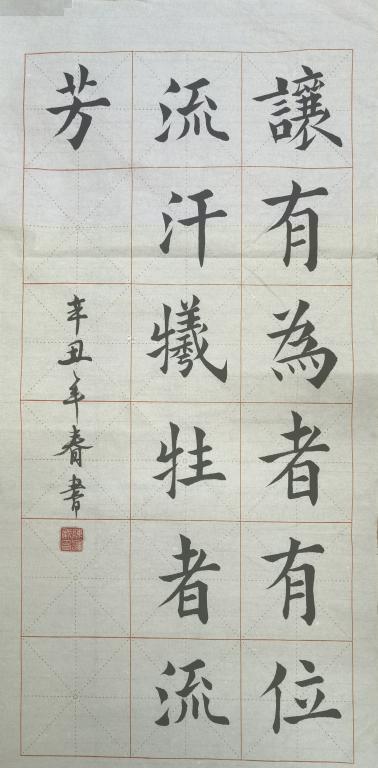 讓有為者有位
流汗犧牲者流
芳
辛丑年春書